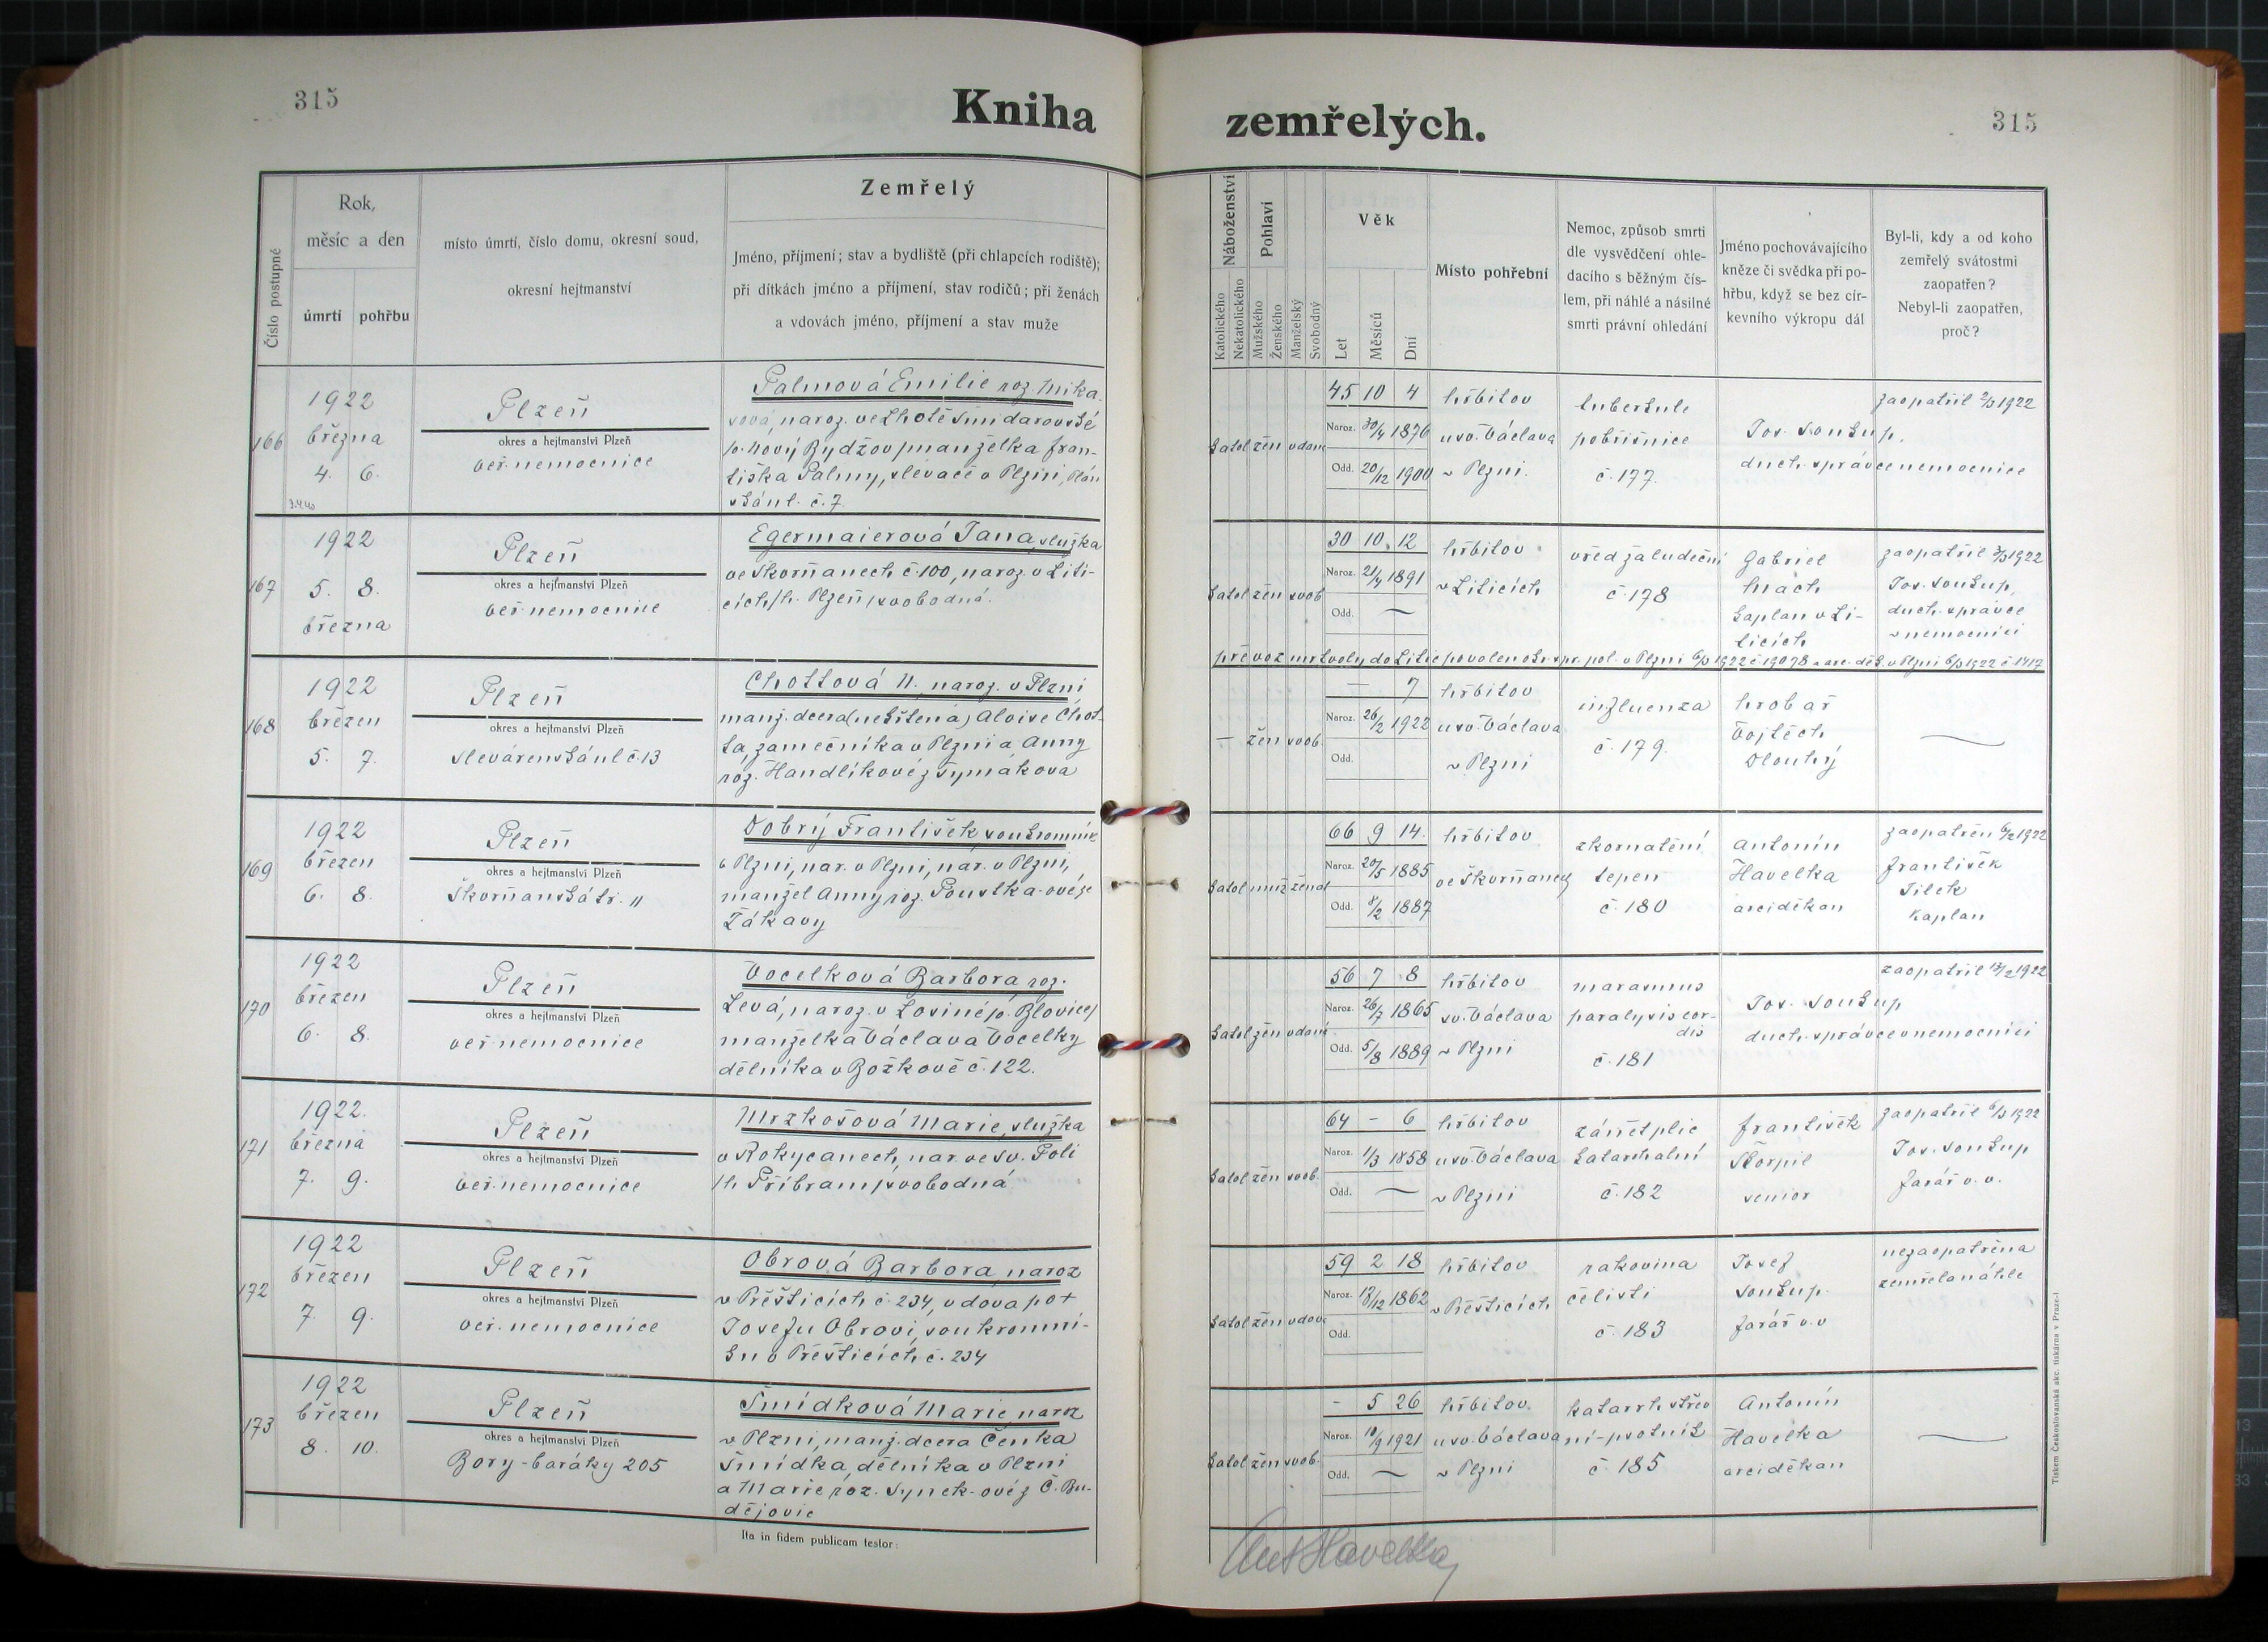 315
Kniha
zemřelých.
315
Číslo postupné
Rok,
měsíc a den
úmrtí
pohřbu
místo úmrtí, číslo domu, okresní soud,
okresní hejtmanství
Zemřelý
Jméno, příjmení; stav a bydliště (při chlapcích rodiště);
při dítkách jméno a příjmení, stav rodičů; při ženách
a vdovách jméno, příjmení a stav muže
Náboženství
Katolického
Nekatolického
Pohlaví
Mužského
Ženského
Manželský
Svobodný
Věk
Let
Měsíců
Dní
Místo pohřební
Nemoc, způsob smrti
dle vysvědčení ohle-
dacího s běžným čís-
lem, při náhlé a násilné
smrti právní ohledání
Jméno pochovávajícího
kněze či svědka při po-
hřbu, když se bez cír-
kevního výkropu dál
Byl-li, kdy a od koho
zemřelý svátostmi
zaopatřen?
Nebyl-li zaopatřen,
proč?
166
1922
března
4. 6.
Plzeň
okres a hejtmanství Plzeň
veř. nemocnice
Palmová Emilie roz. Mika-
sová, naroz. ve Lhotě Šmidarovské
/o. Nový Bydžov/ manželka Fran-
tiška Palmy, slevače v Plzni, Plán
ská ul. č. 7.
katol žen vdaná
45 10 4
Naroz. 30/4 1876
Odd. 20/12 1900
hřbitov
u sv. Václava
v Plzni.
tuberkule
pobřišnice
č. 177.
zaopatřil 2/3 1922
Jos. Soukup,
duch. správce nemocnice
167
1922
5. 8.
března
Plzeň
okres a hejtmanství Plzeň
veř. nemocnice
Egermaierová Jana, služka
ve Skvrňanech č. 100, naroz. v Liti-
cích /h. Plzeň/ svobodná.
katol žen svob
30 10 12
Naroz. 21/4 1891
Odd. —
hřbitov
v Liticích
vřed žaludeční
č. 178
Gabriel
Mach
kaplan v Li-
ticích
zaopatřil 3/3 1922
Jos. Soukup,
duch. správce
v nemocnici
převoz mrtvoly do Litic povolen okr. spr. pol. v Plzni 6/3 1922 č. 19078 a arc. děk. v Plzni 6/3 1922 č. 1417
168
1922
březen
5. 7.
Plzeň
okres a hejtmanství Plzeň
Slevárenská ul. č. 13
Chottová N. naroz. v Plzni
manž. dcera (nekřtěná) Aloise Chot-
ta, zámečníka v Plzni a Anny
roz. Handlíkové z Týmákova
— žen svob.
— 7
Naroz. 26/2 1922
Odd.
hřbitov
u sv. Václava
v Plzni
influenza
č. 179.
hrobař
Vojtěch
Dlouhý
—
169
1922
březen
6. 8.
Plzeň
okres a hejtmanství Plzeň
Škvrňanská tř. 11
Dobrý František, soukromník
v Plzni, nar. v Plzni, nar. v Plzni,
manžel Anny roz. Poustka-ové ze
Žákavy
katol muž ženat
66 9 14.
Naroz. 20/5 1885
Odd. 8/2 1887
hřbitov
ve Škvrňanech
zkornatění
tepen
č. 180
Antonín
Havelka
arciděkan
zaopatřen 6/2 1922
František
Jílek
kaplan
170
1922
březen
6. 8.
Plzeň
okres a hejtmanství Plzeň
veř. nemocnice
Vocelková Barbora roz.
Levá, naroz. v Losiné /o. Blovice/
manželka Václava Vocelky
dělníka v Božkově č. 122.
katol žen vdaná
56 7 8
Naroz. 26/7 1865
Odd. 5/8 1889
hřbitov
sv. Václava
v Plzni
marasmus
paralysis cor-
dis
č. 181
zaopatřil 13/2 1922
Jos. Soukup
duch. správce v nemocnici
171
1922.
března
7. 9.
Plzeň
okres a hejtmanství Plzeň
veř. nemocnice
Mrzkošová Marie, služka
v Rokycanech, nar. ve Sv. Poli
/h. Příbram/ svobodná
katol žen svob.
64 – 6
Naroz. 1/3 1858
Odd. —
hřbitov
u sv. Václava
v Plzni
zánět plic
katarrhalní
č. 182
František
Škorpil
senior
zaopatřil 6/3 1922
Jos. Soukup
farář v. v.
172
1922
březen
7. 9.
Plzeň
okres a hejtmanství Plzeň
veř. nemocnice
Obrová Barbora, naroz
v Přešticích č. 234, vdova po †
Josefu Obrovi, soukromní-
ku v Přešticích č. 234
katol žen vdova
59 2 18
Naroz. 18/12 1862
Odd.
hřbitov
v Přešticích
rakovina
čelisti
č. 183
Josef
Soukup.
farář v. v
nezaopatřena
zemřela náhle
173
1922
březen
8. 10.
Plzeň
okres a hejtmanství Plzeň
Bory-baráky 205
Šmídková Marie, naroz
v Plzni, manž. dcera Čeňka
Šmídka, dělníka v Plzni
a Marie roz. Synek-ové z Č. Bu-
dějovic
katol žen svob.
– 5 26
Naroz. 10/9 1921
Odd. —
hřbitov
u sv. Václava
v Plzni
katarrh střev
ní-psotník
č. 185
Antonín
Havelka
arciděkan
—
Ita in fidem publicam testor:
Ant Havelka
Tiskem Českoslovanská akc. tiskárna v Praze-I.